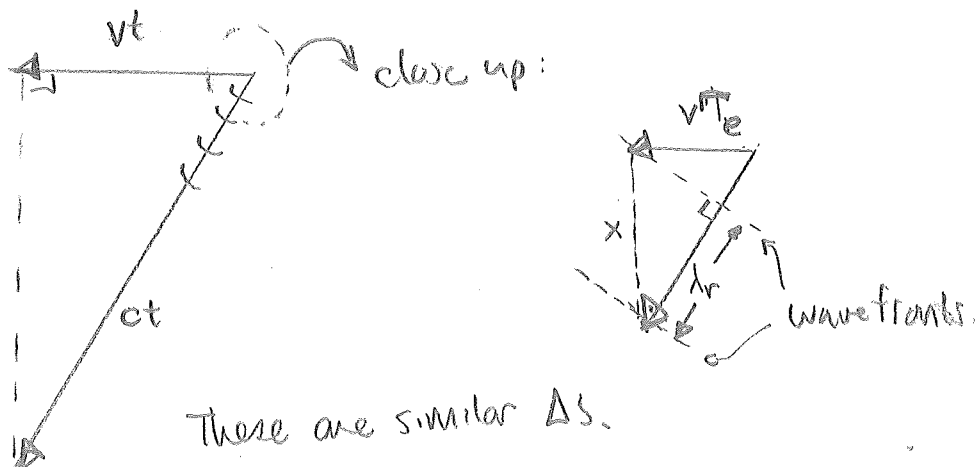 vt
close up:
vTe
x
λr
wavefronts.
ct
These are similar Δs.